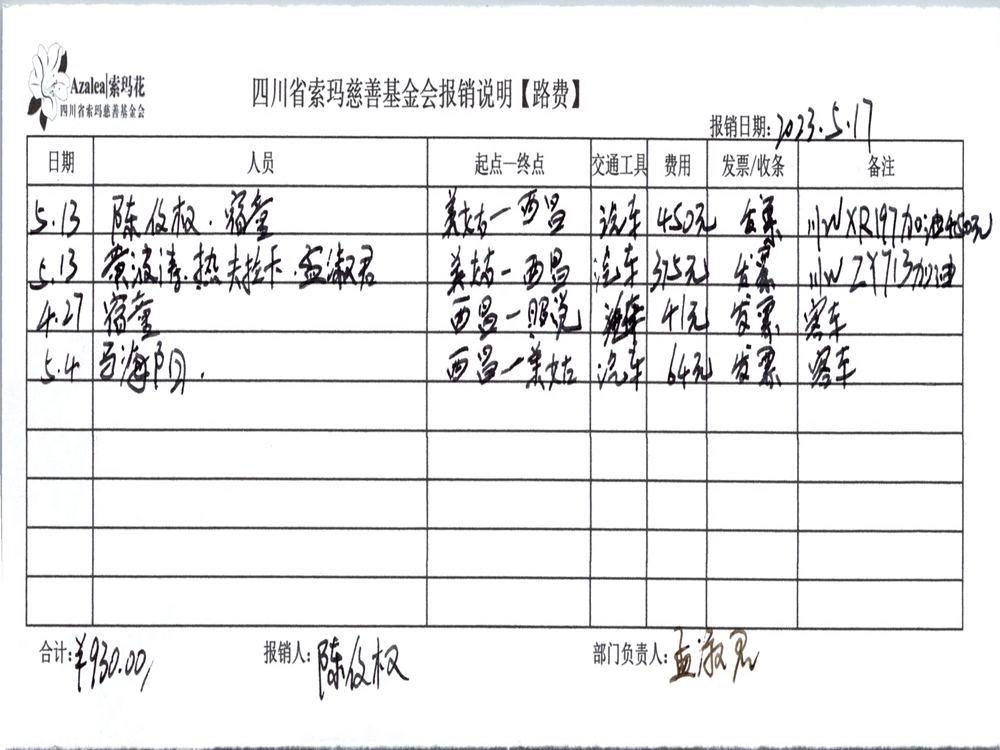 Azalea|索玛花
四川省索玛慈善基金会
四川省索玛慈善基金会报销说明【路费】
报销日期：2023.5.17
日期 人员 起点—终点 交通工具 费用 发票/收条 备注
5.13 陈攸权.宿奎 美姑—西昌 汽车 450元 发票 川WXR197加油450元
5.13 黄波涛.热夫拉卡.孟淑君 美姑—西昌 汽车 375元 发票 川WZY713加油
4.27 宿奎 西昌—昭觉 汽车 41元 发票 客车
5.4 西昌—美姑 汽车 64元 发票 客车
合计：¥930.00/ 报销人：陈攸权 部门负责人：孟淑君